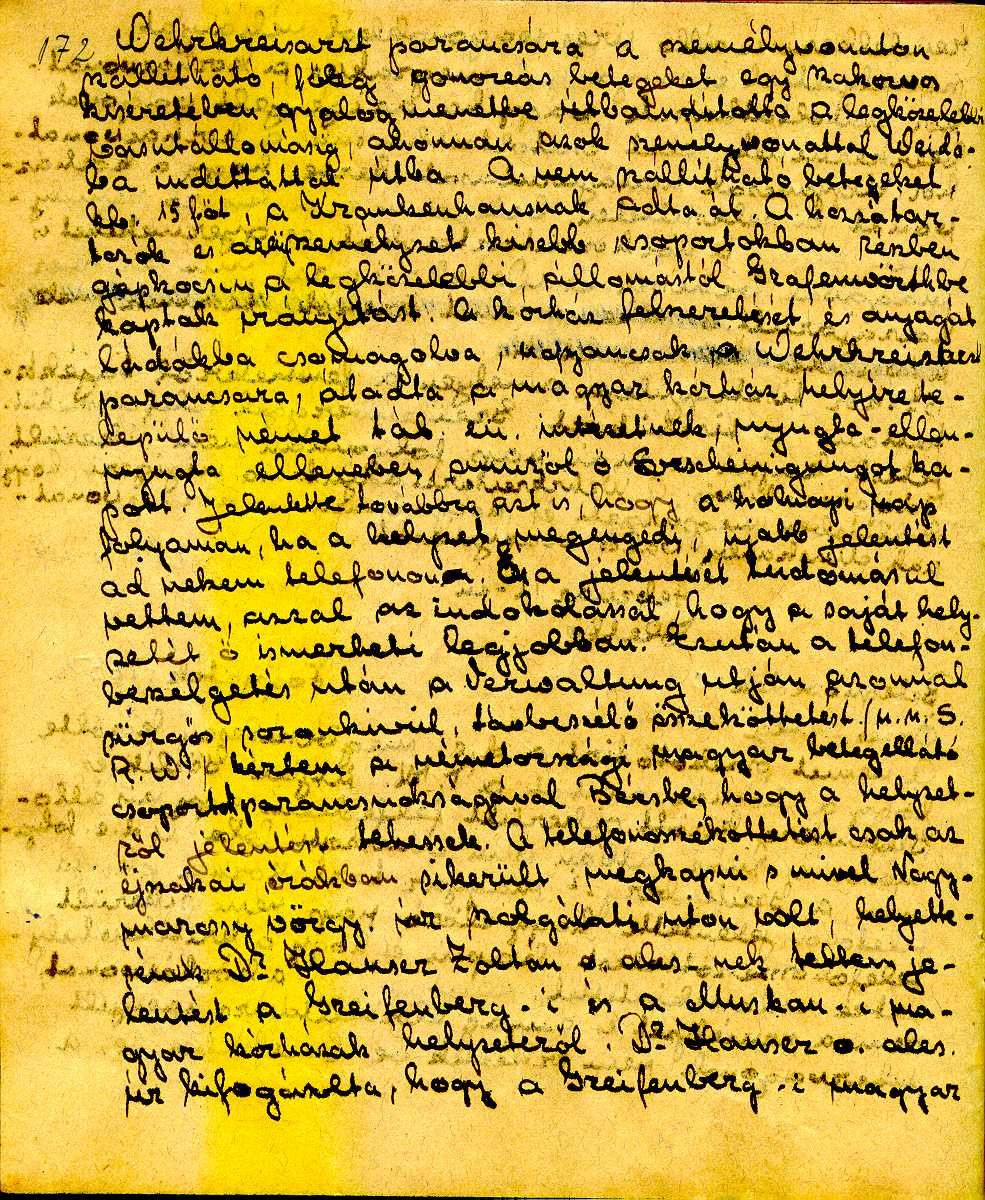 172 Wehrkreisarzt parancsára a személyvonaton
szállítható, főleg gonoreás betegeket egy szakorvos
kíséretében gyalogmenetbe útbaindította a legközelebbi
vasútállomásig, ahonnan azok személyvonattal Weida-
ba indíttattak útba. A nem szállítható betegeket,
kb. 15 főt, a Krankenhausnak adta át. A hozzátar-
tozók és a személyzet kisebb csoportokban részben
gépkocsin a legközelebbi állomástól Grafenwörthbe
kaptak irányítást. A kórház felszerelését és anyagát
ládákba csomagolva, ugyancsak a Wehrkreisarzt
parancsára, átadta a magyar kórház helyére te-
lepülő német táb. eü. intézetnek, nyugta-ellen-
nyugta ellenében, amiről ő Bescheinigungot ka-
pott. Jelentette továbbra azt is, hogy a holnapi nap
folyamán, ha a helyzet megengedi, ujabb jelentést
ad nekem telefonon. Én a jelentését tudomásul
vettem, azzal az indokolással, hogy a saját hely-
zetét ő ismerheti legjobban. Ezután a telefon-
beszélgetés után a Verwaltung utján azonnal
sürgős, soronkivül, távbeszélő összeköttetést (u.n. S.
R. W.) kértem a németországi magyar betegellátó
csoportparancsnokságával Bécsbe, hogy a helyzet-
ről jelentést tehessek. A telefonösszeköttetést csak az
éjszakai órákban sikerült megkapni s mivel Nagy-
marossy vörgy. úr szolgálati uton volt, helyette-
sének Dr. Hauser Zoltán o. ales.-nek tettem je-
lentést a Greifenberg-i és a Muskau-i ma-
gyar kórházak helyzetéről. Dr. Hauser o. ales.
úr kifogásolta, hogy a Greifenberg-i magyar